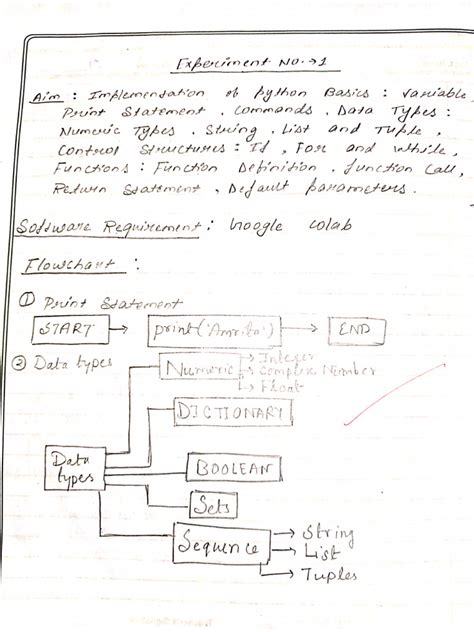 Experiment No. → 1
Aim : Implementation of Python Basics : Variable,
Print Statement, Commands, Data Types :
Numeric Types, String, List and Tuple,
Control Structures : If, For and While,
Functions : Function Definition, function Call,
Return Statement, Default parameters.
Software Requirement : Google colab
Flowchart :
① Print Statement
START → print('Amrita') → END
② Data types
Numeric → Integer
→ Complex Number
→ Float
DICTIONARY
Data types
BOOLEAN
Sets
Sequence → String
→ List
→ Tuples